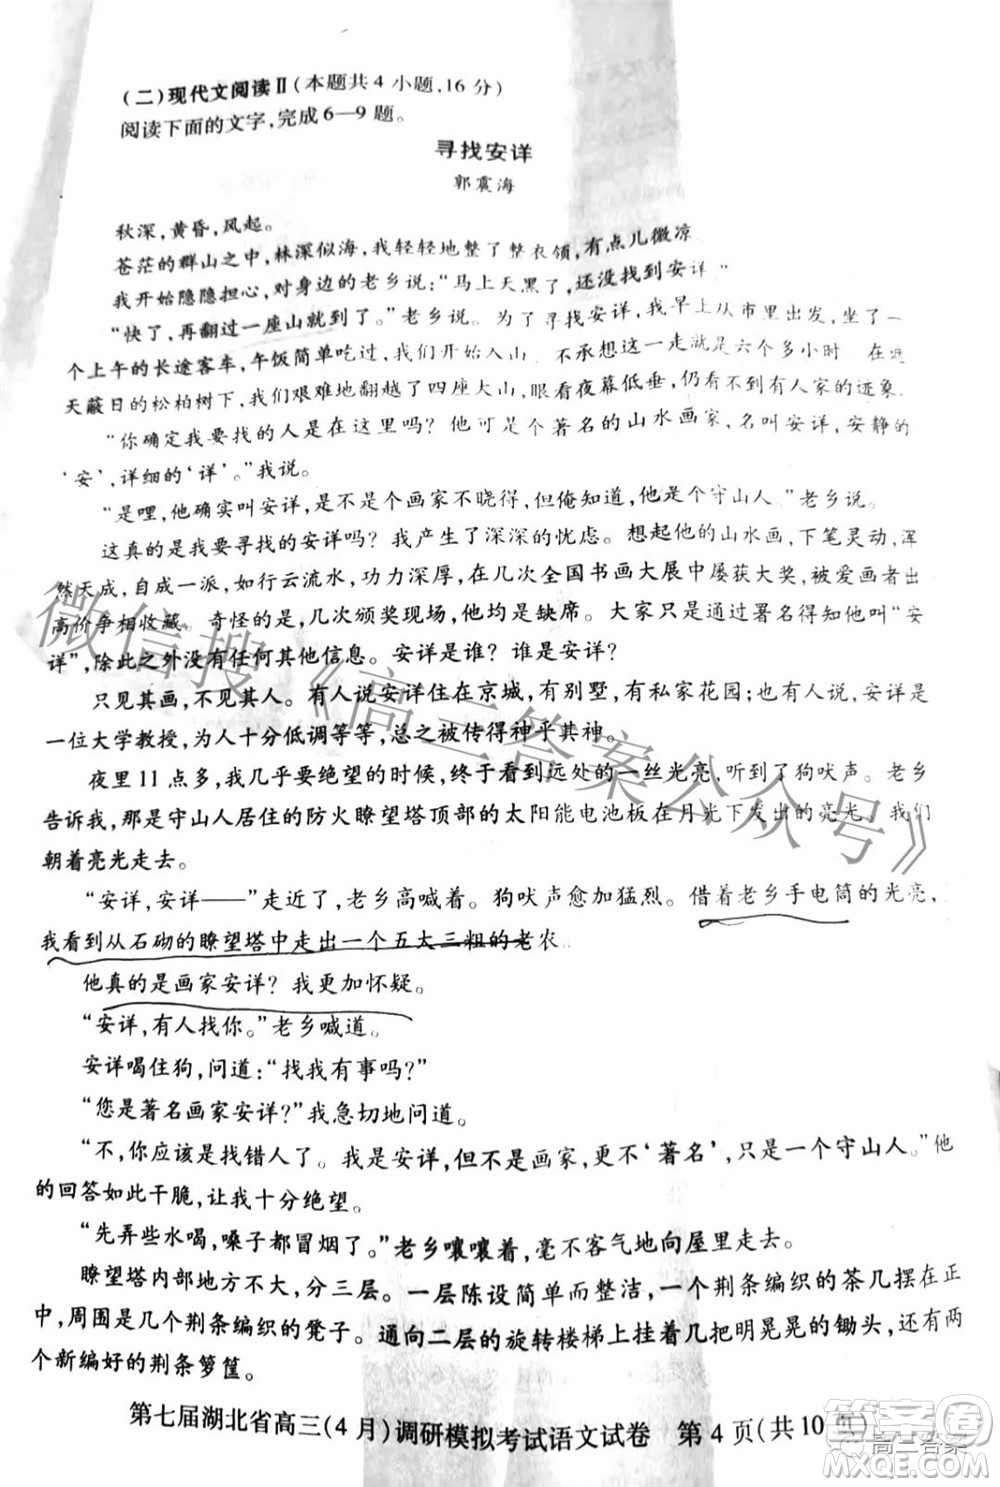 (二)现代文阅读Ⅱ(本题共4小题,16分)
阅读下面的文字,完成6—9题。
寻找安详
郭震海
秋深,黄昏,风起。
苍茫的群山之中,林深似海,我轻轻地整了整衣领,有点儿微凉
我开始隐隐担心,对身边的老乡说:“马上天黑了,还没找到安详”
“快了,再翻过一座山就到了。”老乡说。为了寻找安详,我早上从市里出发,坐了一
个上午的长途客车,午饭简单吃过,我们开始入山 不承想这一走就是六个多小时 在遮
天蔽日的松柏树下,我们艰难地翻越了四座大山,眼看夜幕低垂,仍看不到有人家的迹象
“你确定我要找的人是在这里吗?他可是个著名的山水画家,叫安详,安静的
‘安’,详细的‘详’。”我说。
“是哩,他确实叫安详,是不是个画家不晓得,但俺知道,他是个守山人。”老乡说。
这真的是我要寻找的安详吗?我产生了深深的忧虑。想起他的山水画,下笔灵动,浑
然天成,自成一派,如行云流水,功力深厚,在几次全国书画大展中屡获大奖,被爱画者出
高价争相收藏。奇怪的是,几次颁奖现场,他均是缺席。大家只是通过署名得知他叫“安
详”,除此之外没有任何其他信息。安详是谁?谁是安详?
只见其画,不见其人。有人说安详住在京城,有别墅,有私家花园;也有人说,安详是
一位大学教授,为人十分低调等等,总之被传得神乎其神。
夜里11点多,我几乎要绝望的时候,终于看到远处的一丝光亮,听到了狗吠声。老乡
告诉我,那是守山人居住的防火瞭望塔顶部的太阳能电池板在月光下发出的亮光。我们
朝着亮光走去。
“安详,安详——”走近了,老乡高喊着。狗吠声愈加猛烈。借着老乡手电筒的光亮,
我看到从石砌的瞭望塔中走出一个五大三粗的老农
他真的是画家安详?我更加怀疑。
“安详,有人找你。”老乡喊道。
安详喝住狗,问道:“找我有事吗?”
“您是著名画家安详?”我急切地问道。
“不,你应该是找错人了。我是安详,但不是画家,更不‘著名’,只是一个守山人。”他
的回答如此干脆,让我十分绝望。
“先弄些水喝,嗓子都冒烟了。”老乡嚷嚷着,毫不客气地向屋里走去。
瞭望塔内部地方不大,分三层。一层陈设简单而整洁,一个荆条编织的茶几摆在正
中,周围是几个荆条编织的凳子。通向二层的旋转楼梯上挂着几把明晃晃的锄头,还有两
个新编好的荆条箩筐。
第七届湖北省高三(4月)调研模拟考试语文试卷 第4页(共10页)
微信搜《高三答案公众号》
答案圈
高三答案
MXQE.COM